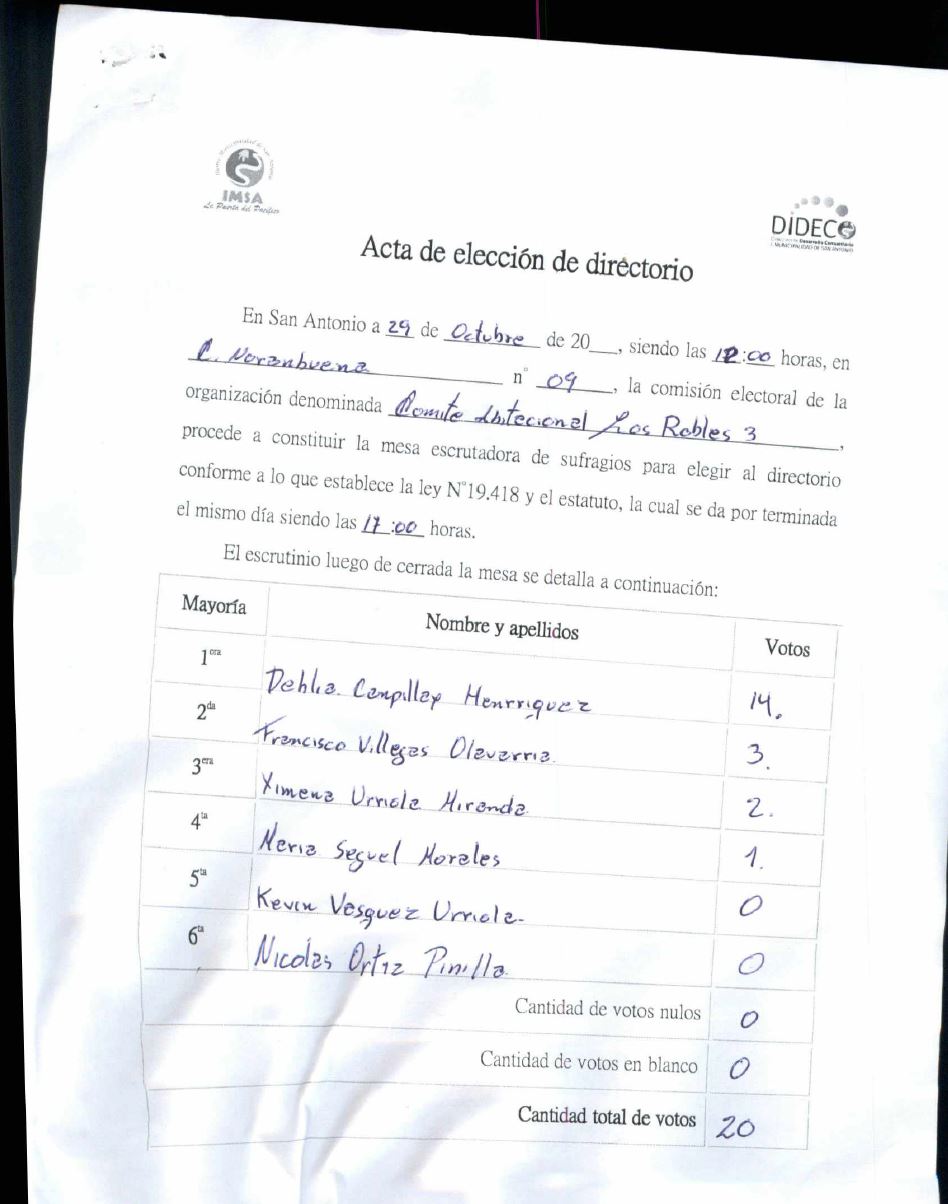 IMSA
La Puerta del Pacífico
DIDECO
Dirección de Desarrollo Comunitario
I. MUNICIPALIDAD DE SAN ANTONIO
Acta de elección de directorio
En San Antonio a 29 de Octubre de 20___, siendo las 12:00 horas, en
C. Noranbuena n° 09, la comisión electoral de la
organización denominada Comite Abitacional Los Robles 3,
procede a constituir la mesa escrutadora de sufragios para elegir al directorio
conforme a lo que establece la ley N°19.418 y el estatuto, la cual se da por terminada
el mismo día siendo las 17:00 horas.
El escrutinio luego de cerrada la mesa se detalla a continuación:
Mayoría Nombre y apellidos Votos
1era Dehlia Campillay Henrriquez 14.
2da Francisco Villegas Olavarria 3.
3era Ximena Urriola Miranda 2.
4ta Maria Seguel Morales 1.
5ta Kevin Vasquez Urriola 0
6ta Nicolas Ortiz Pinilla 0
Cantidad de votos nulos 0
Cantidad de votos en blanco 0
Cantidad total de votos 20